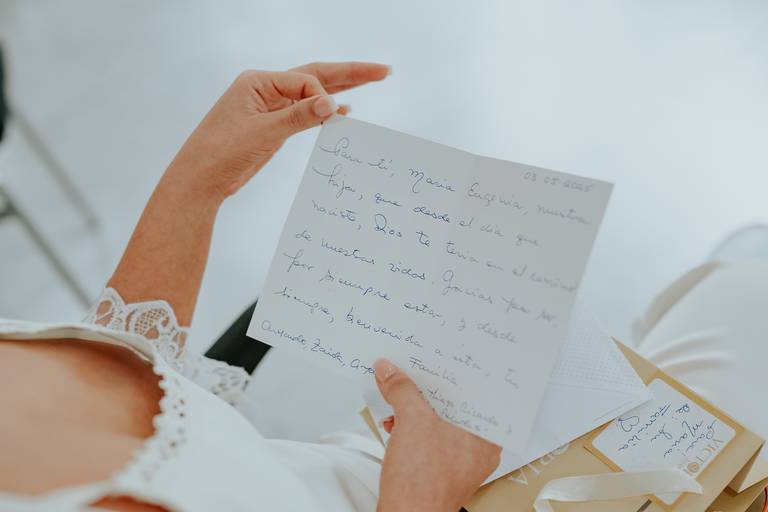 03 05 2025
Para ti, Maria Eugenia, nuestra
hija, que desde el dia que
naciste, Dios te tenia en el camino
de nuestras vidas. Gracias por ser,
por siempre estar, y desde
siempre, bienvenida a esta, tu
Familia
Armando, Zaida,
Ricardo y
Para
Maria
De su
Familia
VICTORIA